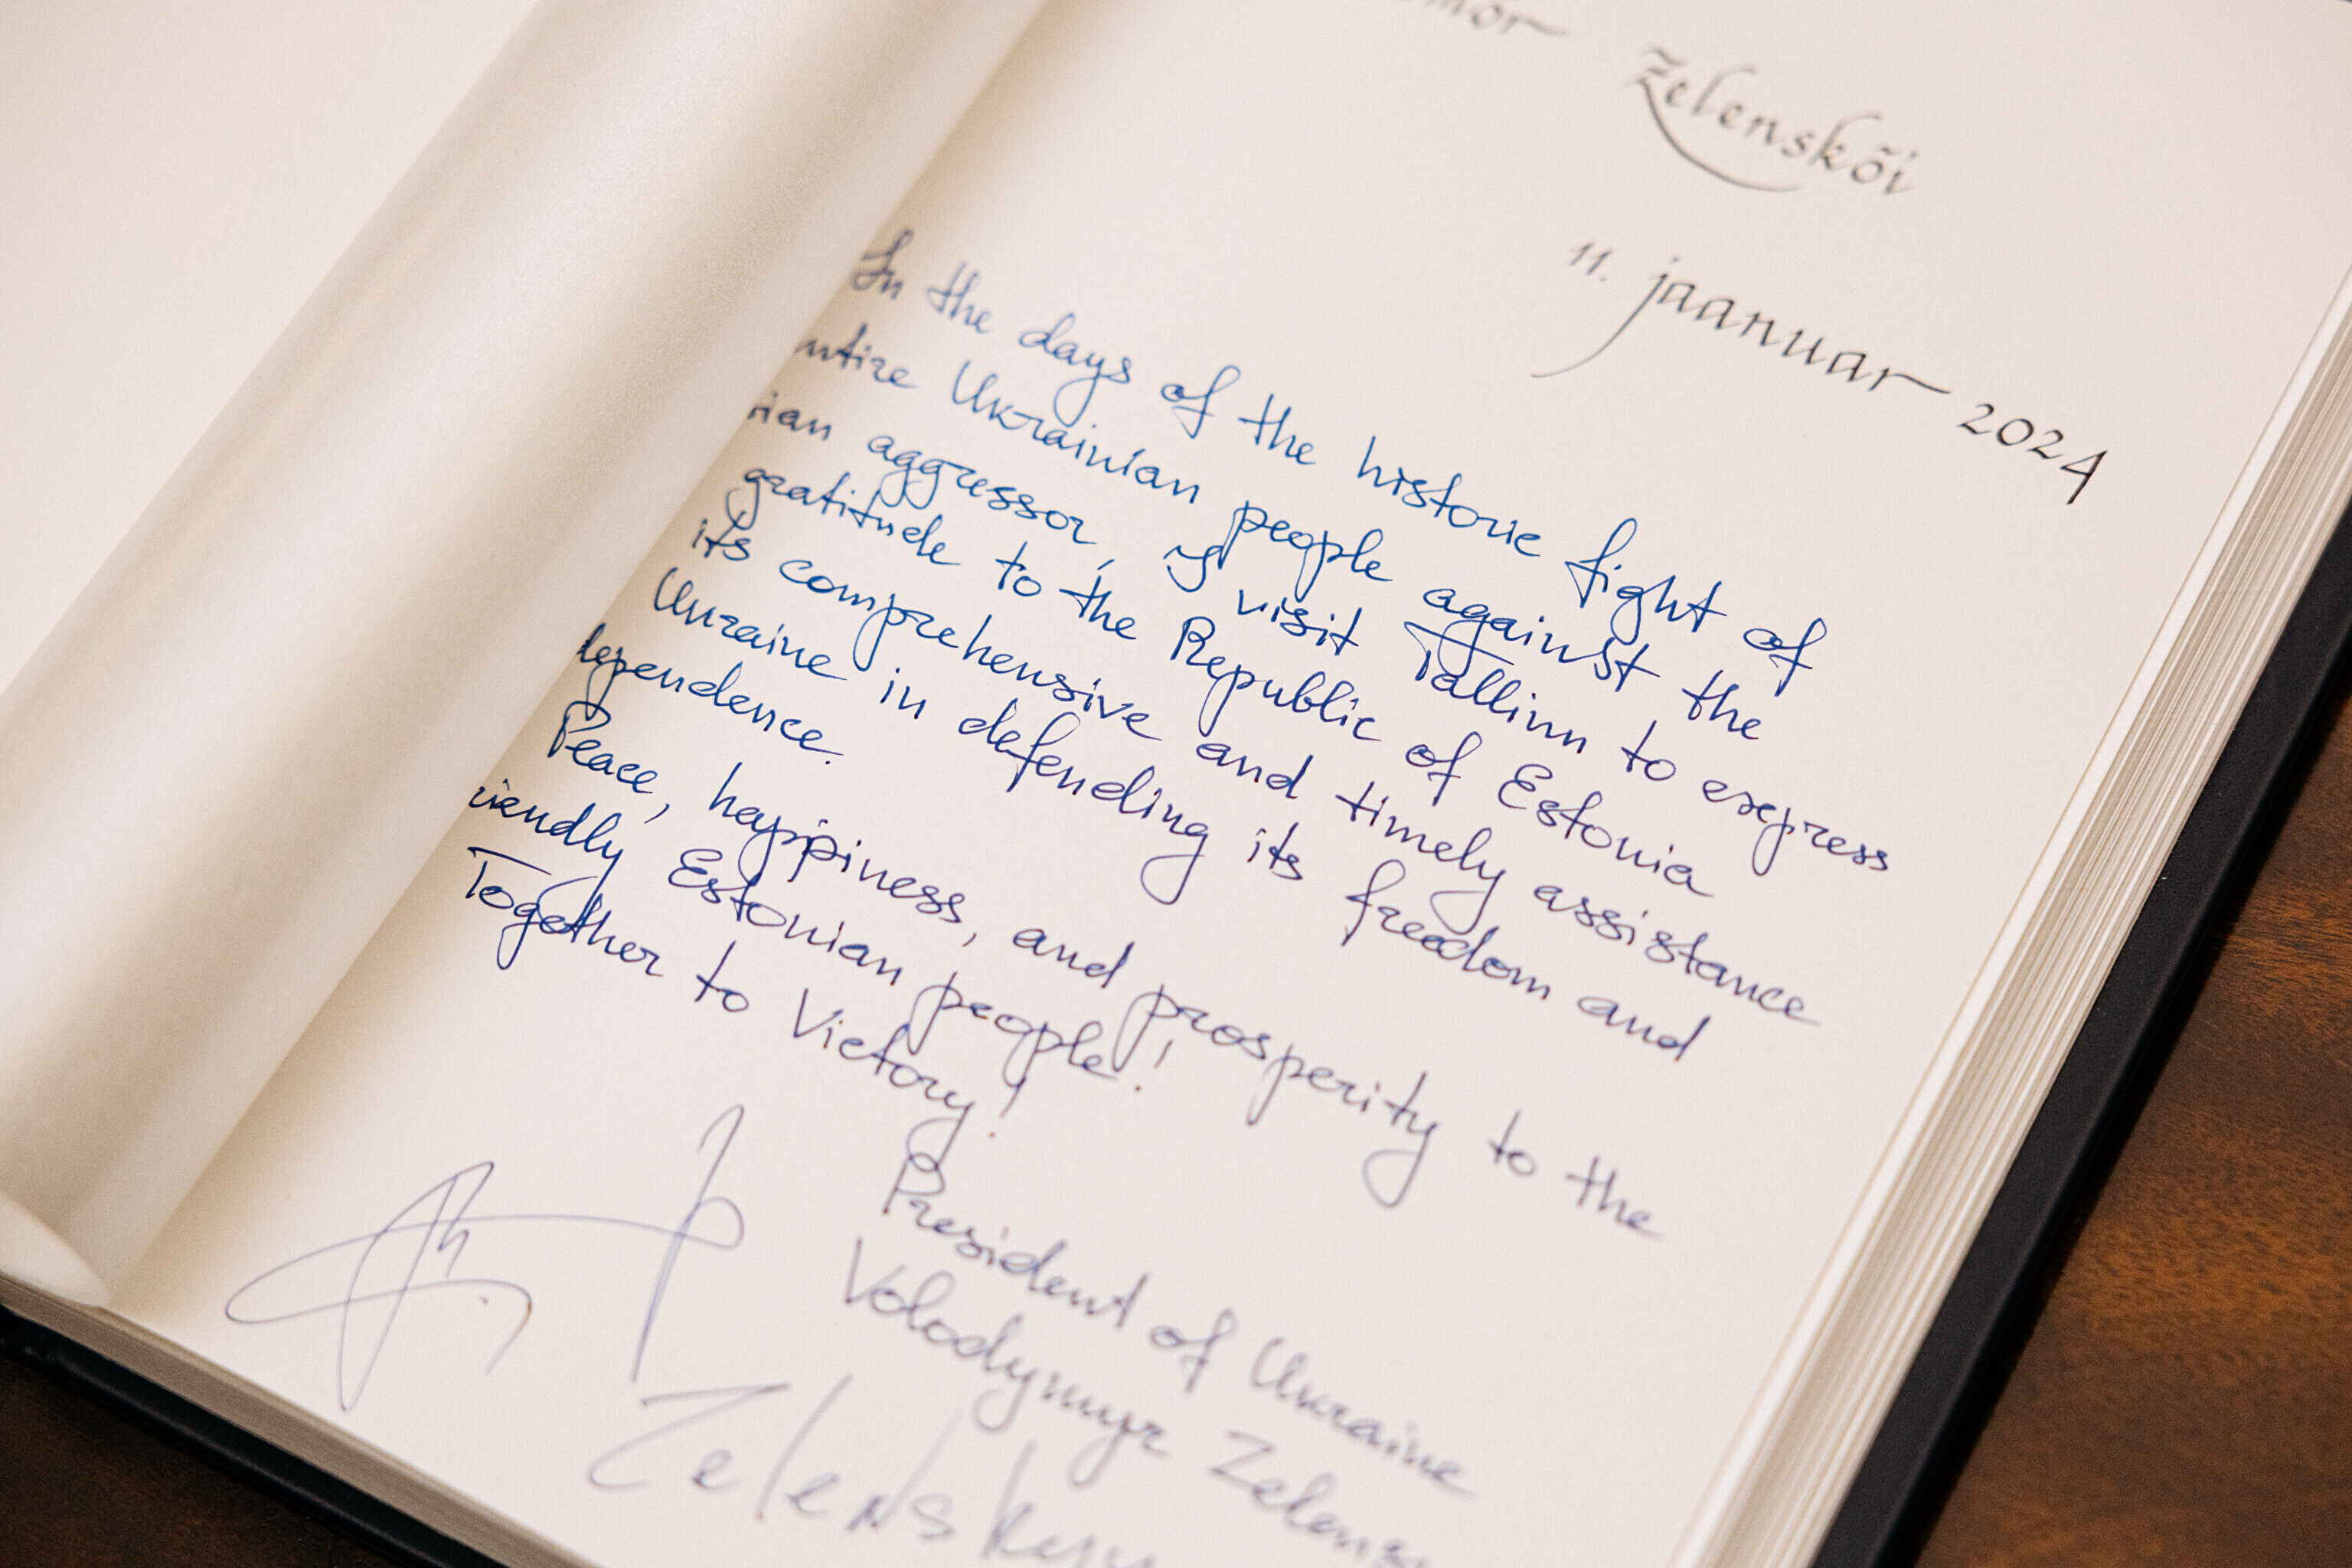 Zelenskõi
11. jaanuar 2024
In the days of the historic fight of
ntire Ukrainian people against the
ian aggressor, I visit Tallinn to express
gratitude to the Republic of Estonia
its comprehensive and timely assistance
Ukraine in defending its freedom and
dependence.
Peace, happiness, and prosperity to the
riendly Estonian people!
Together to Victory!
President of Ukraine
Volodymyr Zelens
Zelenskyy